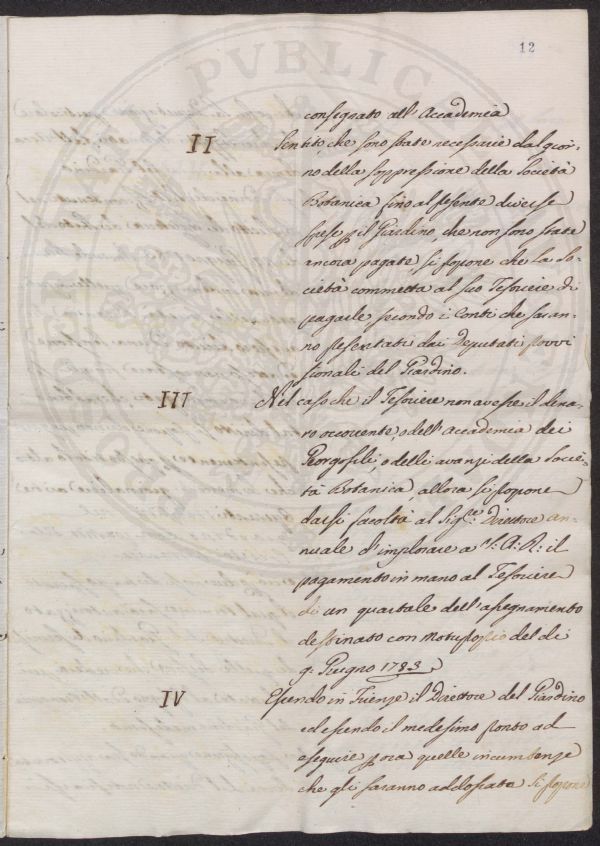 12
consegnato all' Accademia
II Sentito, che sono state necessarie dal gior-
no della soppressione della Società
Botanica fino al presente diverse
spese p il Giardino, che non sono state
ancora pagate, si propone che la So-
cietà commetta al suo Tesoriere di
pagarle secondo i Conti che saran-
no presentati dai Deputati provvi
sionali del Giardino.
III Nel caso che il Tesoriere non avesse il dena-
ro occorrente, o dell' Accademia dei
Georgofili, o delli avanzi della Socie-
tà Botanica, allora si propone
darsi facoltà al Sig.re Direttore an-
nuale d'implorare a S. A. R. il
pagamento in mano al Tesoriere
di un quartale dell' assegnamento
destinato con Motuproprio del dì
9. Giugno 1783.
IV Essendo in Firenze il Direttore del Giardino
ed essendo il medesimo pronto ad
eseguire p ora quelle incumbenze
che gli saranno addossate si propone
PUBLIC